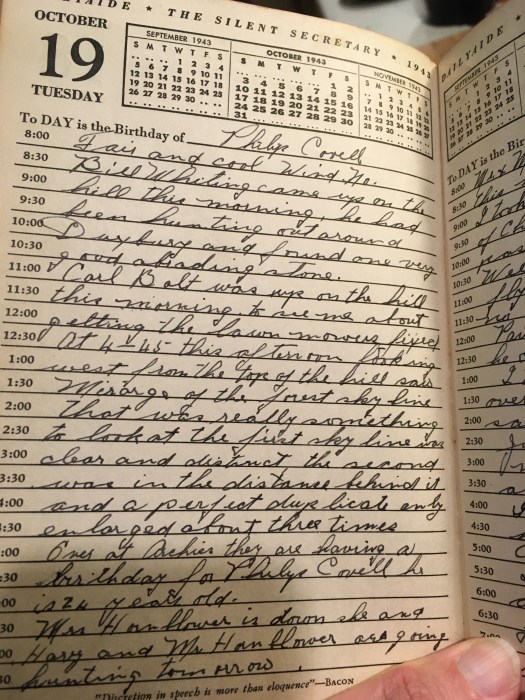 AIDE * THE SILENT SECRETARY * 1943
OCTOBER
19
TUESDAY
SEPTEMBER 1943
S M T W T F S
.. .. .. 1 2 3 4
5 6 7 8 9 10 11
12 13 14 15 16 17 18
19 20 21 22 23 24 25
26 27 28 29 30 .. ..
OCTOBER 1943
S M T W T F S
.. .. .. .. .. 1 2
3 4 5 6 7 8 9
10 11 12 13 14 15 16
17 18 19 20 21 22 23
24 25 26 27 28 29 30
31
NOVEMBER 1943
To DAY is the Birthday of Philys Covell
8:00 Fair and cool Wind No.
8:30 Bill Whiting came up on the
9:00 hill this morning, he had
9:30 been hunting out around
10:00 Duxbury and found one very
10:30 good abrading stone.
11:00 Carl Bolt was up on the hill
11:30 this morning, to see me about
12:00 getting the lawn mowers fixed
12:30 At 4-45 this afternoon looking
1:00 west from the top of the hill saw
1:30 Mirarge of the forest sky line
2:00 that was really something
2:30 to look at the first sky line was
3:00 clear and distinct the second
3:30 was in the distance behind it
4:00 and a perfect duplicate only
:30 enlarged about three times
:00 Over at Archies they are having a
:30 birthday for Philys Covell he
:00 is 24 years old.
30 Mrs Hornflower is down she and
00 Harry and Mr Hornflower are going
30 hunting tomorrow.
"Discretion in speech is more than eloquence"—BACON
DAILYAIDE *
SEPTEMBER 1943
To DAY is the Birt
8:00
8:30 this
9:00 I took
9:30 of
10:00
10:30
11:00
11:30 no
12:00
12:30 he
1:00 I
1:30 over
2:00
2:30
3:00
3:30
4:00
4:30
5:00
5:30
6:00
6:30